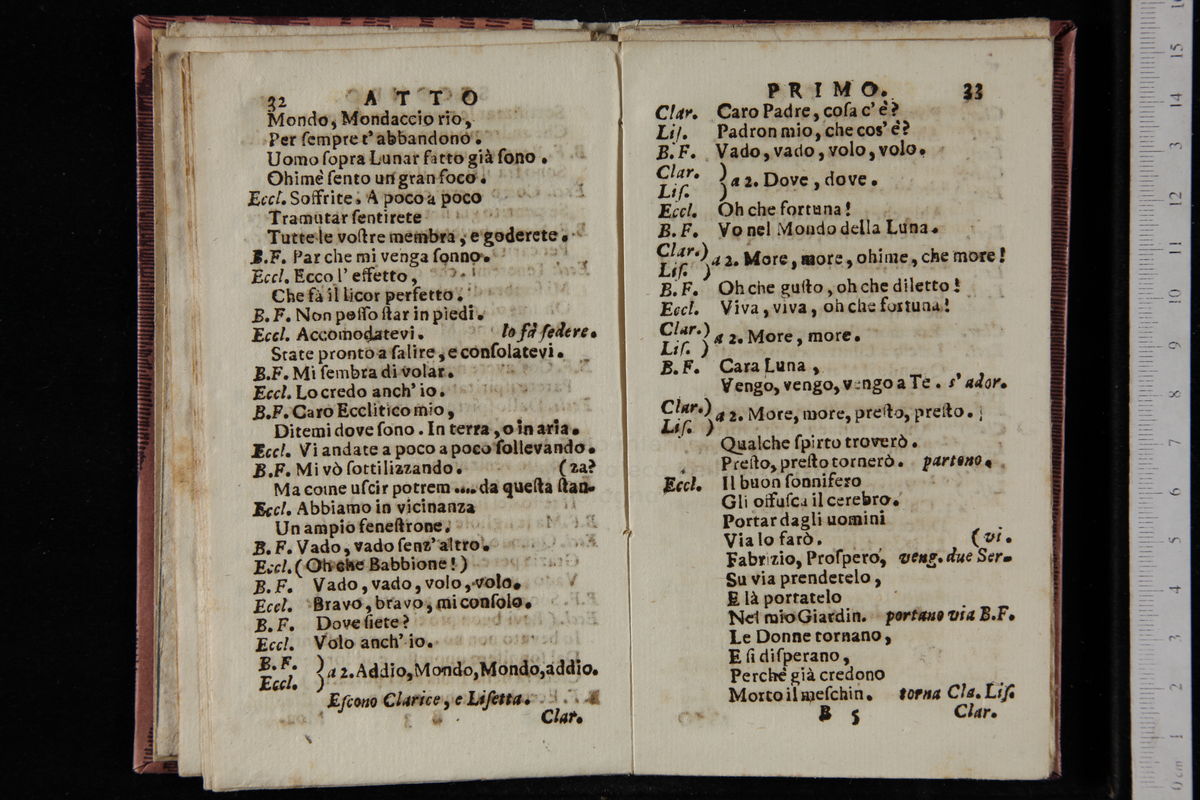 32 ATTO
Mondo, Mondaccio rio,
Per ſempre t' abbandono.
Uomo ſopra Lunar fatto già ſono.
Ohimè ſento un gran foco.
Eccl. Soffrite. A poco a poco
Tramutar ſentirete
Tutte le voſtre membra, e goderete.
B.F. Par che mi venga ſonno.
Eccl. Ecco l' effetto,
Che fà il licor perfetto.
B.F. Non poſſo ſtar in piedi.
Eccl. Accomodatevi. lo fà ſedere.
State pronto a ſalire, e conſolatevi.
B.F. Mi ſembra di volar.
Eccl. Lo credo anch' io.
B.F. Caro Ecclitico mio,
Ditemi dove ſono. In terra, o in aria.
Eccl. Vi andate a poco a poco ſollevando.
B.F. Mi vò ſottilizzando. (za?
Ma come uſcir potrem .... da queſta ſtan-
Eccl. Abbiamo in vicinanza
Un ampio feneſtrone.
B.F. Vado, vado ſenz' altro.
Eccl. (Oh che Babbione!)
B.F. Vado, vado, volo, volo.
Eccl. Bravo, bravo, mi conſolo.
B.F. Dove ſiete?
Eccl. Volo anch' io.
B.F. )
Eccl. ) a 2. Addio, Mondo, Mondo, addio.
Eſcono Clarice, e Liſetta.
Clar.
PRIMO. 33
Clar. Caro Padre, coſa c' è?
Liſ. Padron mio, che cos' è?
B.F. Vado, vado, volo, volo.
Clar. )
Liſ. ) a 2. Dove, dove.
Eccl. Oh che fortuna!
B.F. Vo nel Mondo della Luna.
Clar.)
Liſ. ) a 2. More, more, ohime, che more!
B.F. Oh che guſto, oh che diletto!
Eccl. Viva, viva, oh che fortuna!
Clar.)
Liſ. ) a 2. More, more.
B.F. Cara Luna,
Vengo, vengo, vengo a Te. s' ador.
Clar.)
Liſ. ) a 2. More, more, preſto, preſto.
Qualche ſpirto troverò.
Preſto, preſto tornerò. partono.
Eccl. Il buon ſonnifero
Gli offuſca il cerebro.
Portar dagli uomini
Via lo farò. (vi.
Fabrizio, Proſpero, veng. due Ser-
Su via prendetelo,
E là portatelo
Nel mio Giardin. portano via B.F.
Le Donne tornano,
E ſi diſperano,
Perchè già credono
Morto il meſchin. torna Cla. Liſ.
B 5 Clar.